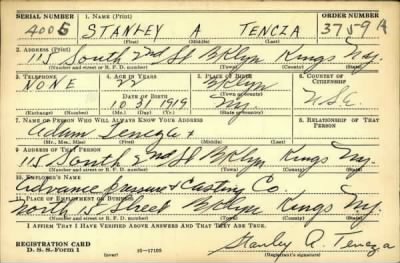 SERIAL NUMBER 1. NAME (Print) ORDER NUMBER
4005 STANLEY A TENCZA 3759 A
(First) (Middle) (Last)
2. ADDRESS (Print)
115 South 2nd St BKlyn Kings Ny.
(Number and street or R. F. D. number) (Town) (County) (State)
3. TELEPHONE 4. AGE IN YEARS 5. PLACE OF BIRTH 6. COUNTRY OF CITIZENSHIP
NONE 22 BKlyn
DATE OF BIRTH (Town or county)
10 31 1919 Ny. U.S.A.
(Exchange) (Number) (Mo.) (Day) (Yr.) (State or country)
7. NAME OF PERSON WHO WILL ALWAYS KNOW YOUR ADDRESS 8. RELATIONSHIP OF THAT PERSON
Adam Tencza
(Mr., Mrs., Miss) (First) (Middle) (Last)
9. ADDRESS OF THAT PERSON
115 South 2nd St BKlyn Kings Ny.
(Number and street or R. F. D. number) (Town) (County) (State)
10. EMPLOYER'S NAME
Advance Pressure Casting Co.
11. PLACE OF EMPLOYMENT OR BUSINESS
North 1st Street BKlyn Kings Ny.
(Number and street or R. F. D. number) (Town) (County) (State)
I AFFIRM THAT I HAVE VERIFIED ABOVE ANSWERS AND THAT THEY ARE TRUE.
REGISTRATION CARD
D. S. S. Form 1 16—17105 Stanley A. Tencza
(Registrant's signature)